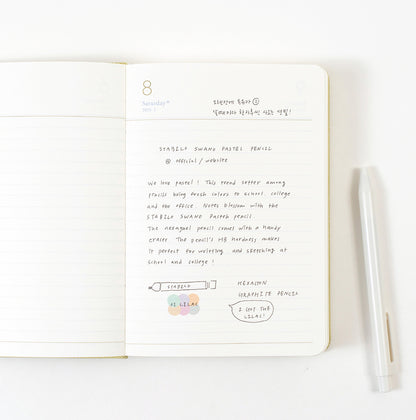 8
Saturday
STABILO SWANO PASTEL PENCIL
@ official / website
We love pastel ! This trend setter among
pencils bring fresh colors to school college
and the office Notes blossom with the
STABILO SWANO Pastel pencil.
The hexagonal pencil comes with a handy
eraser The pencil's HB hardness makes
it perfect for writing and sketching at
school and college !
STABILO
HEXAGON
GRAPHITE PENCIL
01 LILAC
I LOVE THE
LILAC!